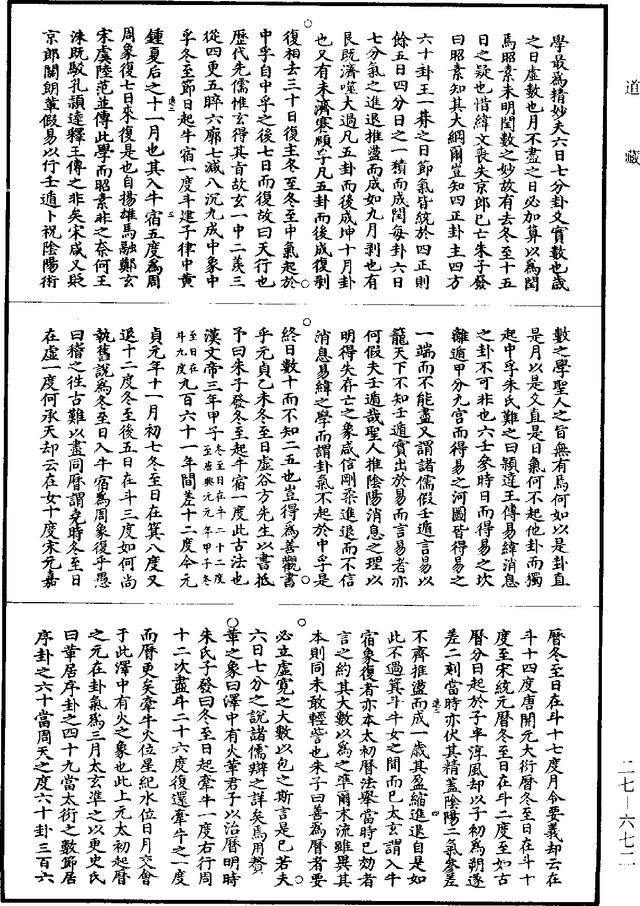 道藏
學最為精妙夫六日七分卦爻實數也歲
之日虛數也月不盡之日必加算以為閏
焉昭素未明閏數之妙故有去冬至十五
日之疑也惜緯文喪失京郎已亡朱子發
曰昭素知其大綱爾豈知四正卦主四方
六十卦壬一朞之日節氣皆統於四正則
餘五日四分日之一積而成閏每卦六日
七分氣之進退推盪而成如九月剥也有
艮既濟噬大過凡五卦而後成坤十月卦
也又有未濟蹇頤孚凡五卦而後成復剥
復相去三十日復主冬至冬至中氣起於
中孚自中孚之後七日而復故曰天行也
歷代先儒惟玄得其首故玄一中二羨三
從四更五睟六廓七減八沉九成中象中
孚冬至節日起牛宿一度斗建子律中黄
鍾夏后之十一月也其入牛宿五度為周
周象復七日來復是也自揚雄馬融鄭玄
宋虞陸范並傳此學而昭素非之奈何王
洙既駁孔穎達釋王傳之非矣宋咸又貶
京郎關朗輩假易以行壬遁卜祝陰陽術
數之學聖人之旨無有焉何如以是卦直
是月以是爻直是日氣何不起他卦而獨
起中孚朱氏難之曰穎達王傳易緯消息
之卦不可非也六壬參時日而得易之坎
離遁甲分九宫而得易之河圖皆得易之
一端而不能盡又謂諸儒假壬遁言易以
籠天下不知壬遁實出於易而言易者亦
何假夫壬遁哉聖人推陰陽消息之理以
明得失存亡之象咸信剛柔進退而不信
消息易緯之學而謂卦氣不起於中孚是
終日數十而不知二五也豈得為善觀書
乎元貞乙未冬至日虛谷方先生以書抵
予曰朱子發冬至起牛宿一度此古法也
漢文帝三年甲子冬至日在斗二十二度至唐興元元年甲子冬
至日在斗九度九百六十一年間差十二度今元
貞元年十一月初七冬至日在箕八度又
退十二度冬至後五日在斗三度如何尚
執舊說為冬至日入牛宿為周象復乎愚
曰稽之徃古難以盡同曆謂堯時冬至日
在虛一度何承天却云在女十度宋元嘉
曆冬至日在斗十七度月令要義却云在
斗十四度唐開元大衍曆冬至日在斗十
度至宋統元曆冬至日在斗二度至如古
曆分日起於子半淳風却以子初為朔遂
差二刻當時亦伏其精蓋陰陽二氣參差
不齊推盪而成一歲其盈縮進退自是如
此不過箕斗牛女之間而已太玄謂入牛
宿象復者亦本太初曆法舉當時已効者
言之約其大數以為之準爾末流雖異其
本則同未敢輕訾也朱子曰善為曆者要
必立虛寬之大數以包之斯言是已若夫
六日七分之說諸儒辯之詳矣焉用贅
革之象曰澤中有火革君子以治曆明時
朱氏子發曰冬至日起牽牛一度右行周
十二次盡斗二十六度復還牽牛之一度
而曆更矣牽牛火位星紀水位日月交會
于此澤中有火之象也此上元太初起曆
之元在卦氣為三月太玄準之以更史氏
曰革居序卦之四十九當太衍之數節居
序卦之六十當周天之度六十卦三百六
二七—六七二